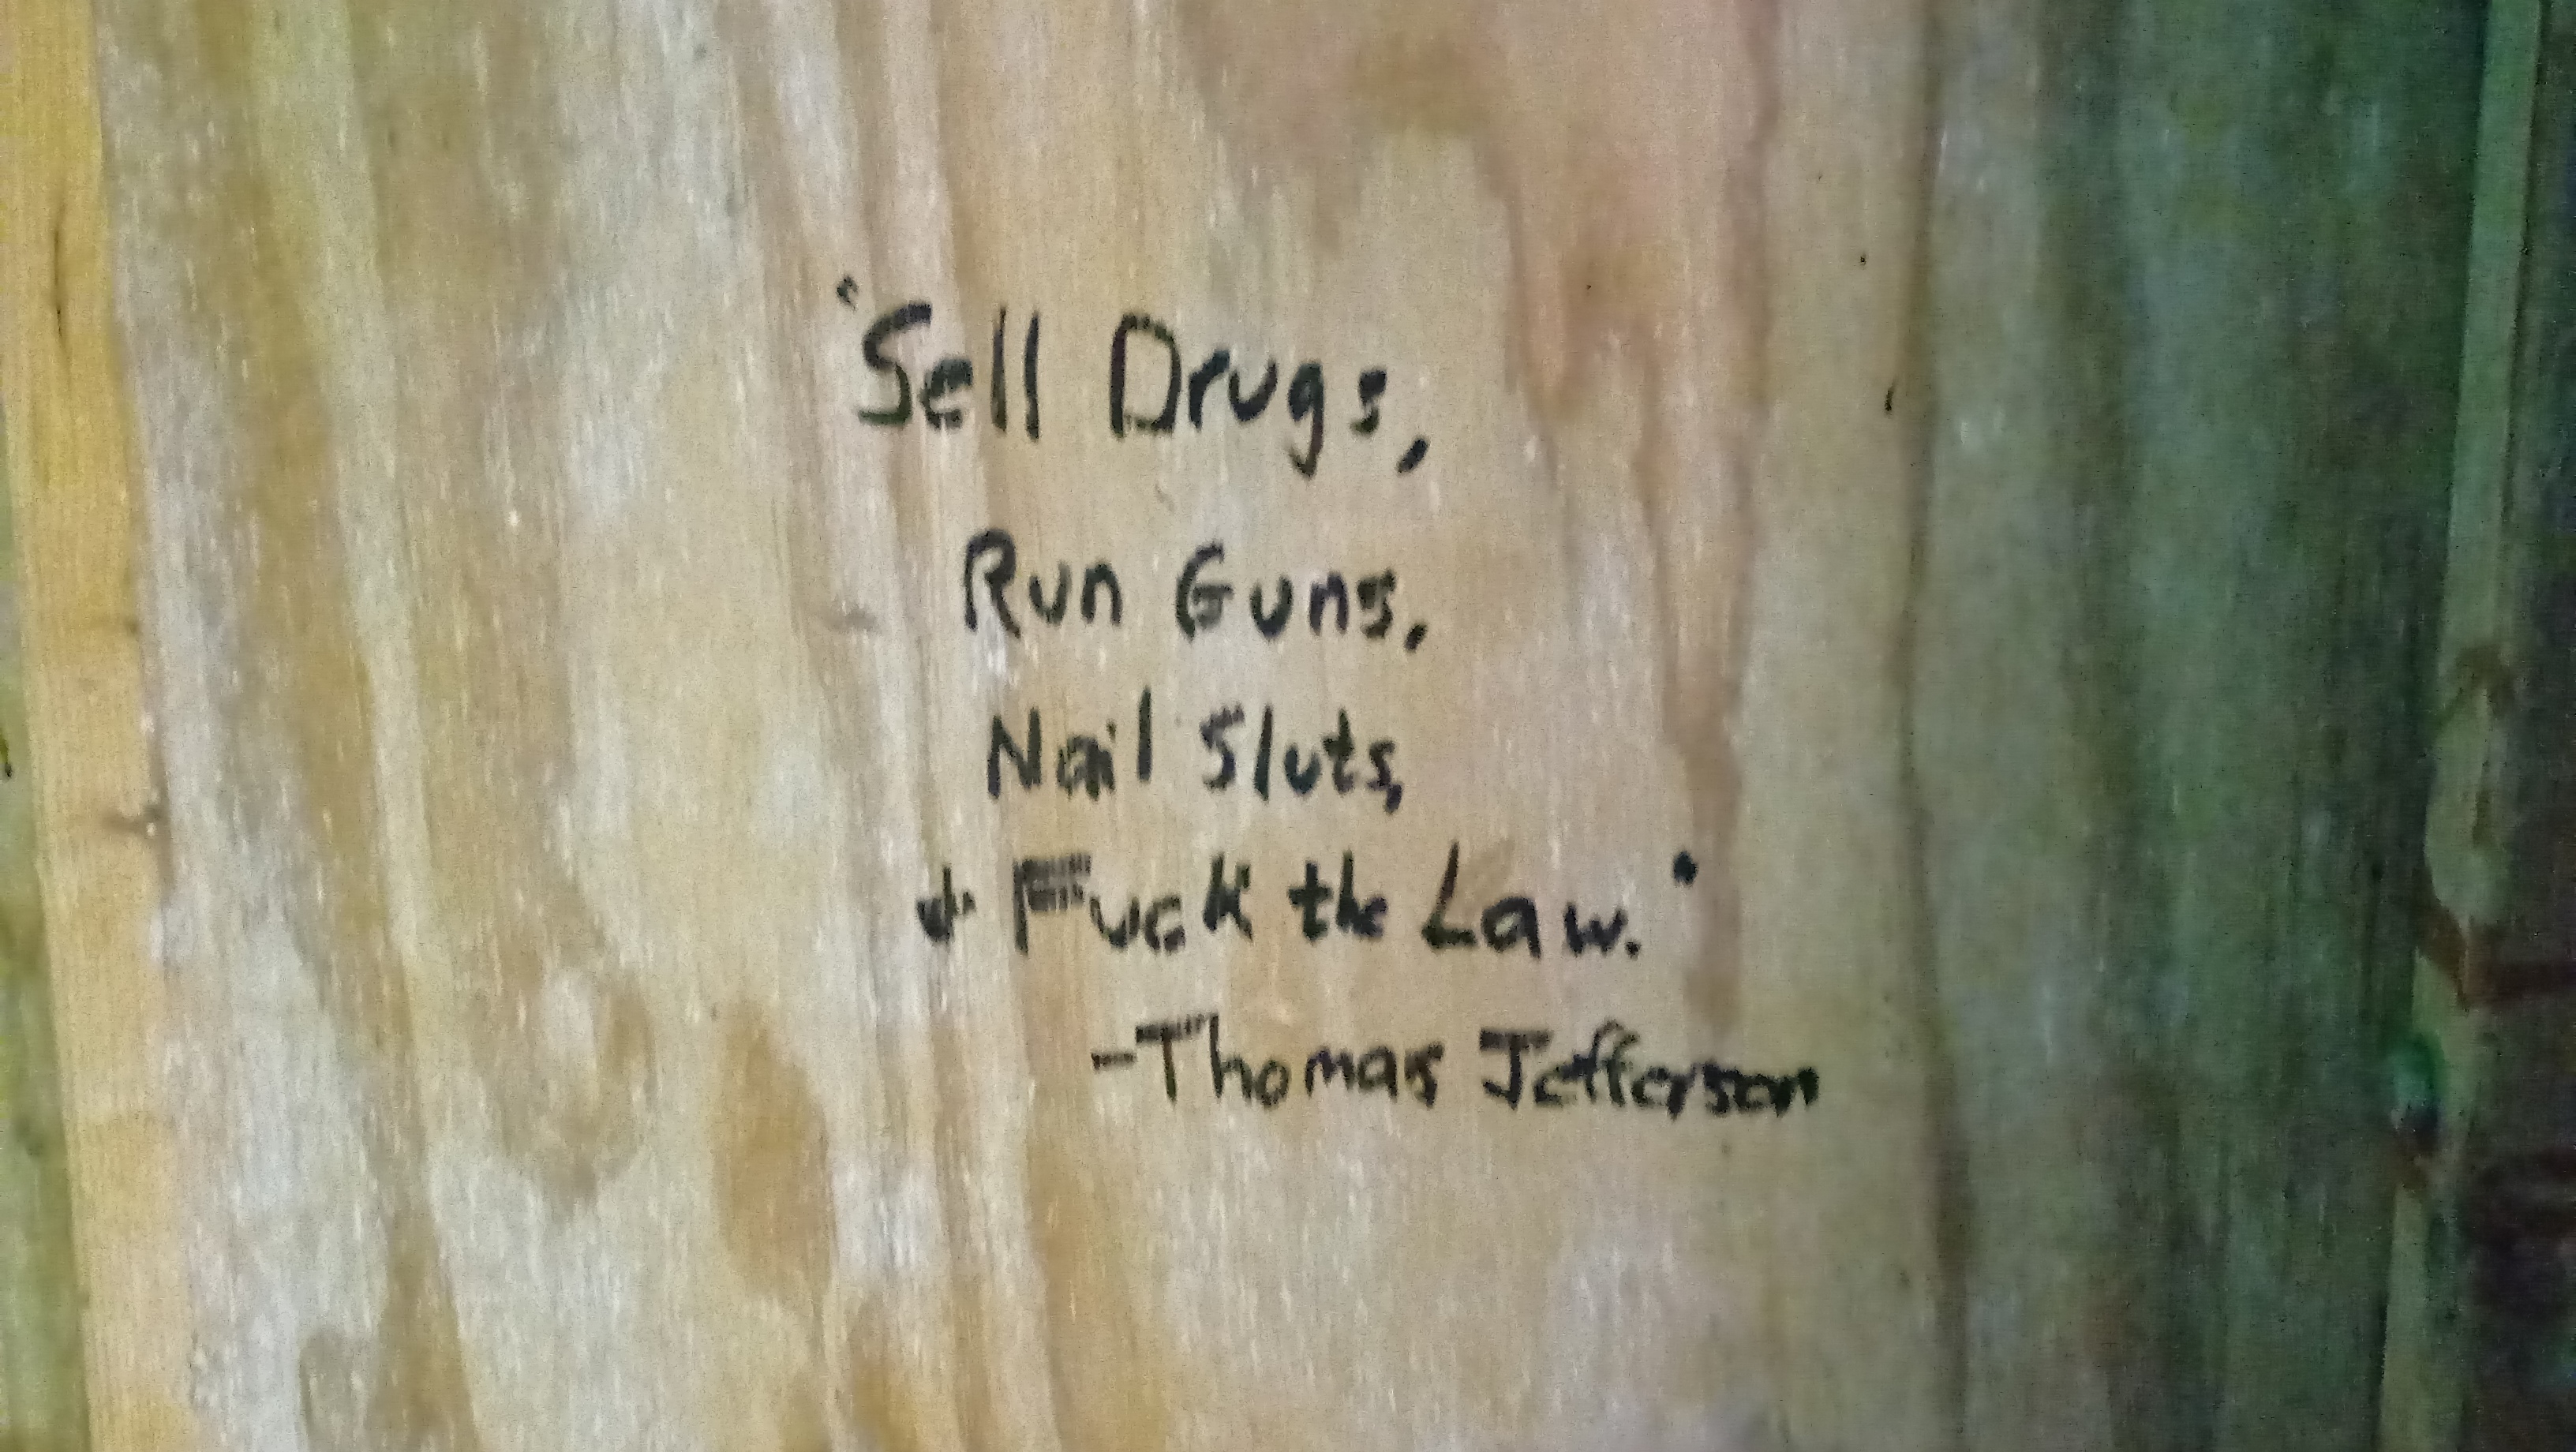 "Sell Drugs,
Run Guns,
Nail Sluts,
+ Fuck the Law."
-Thomas Jefferson